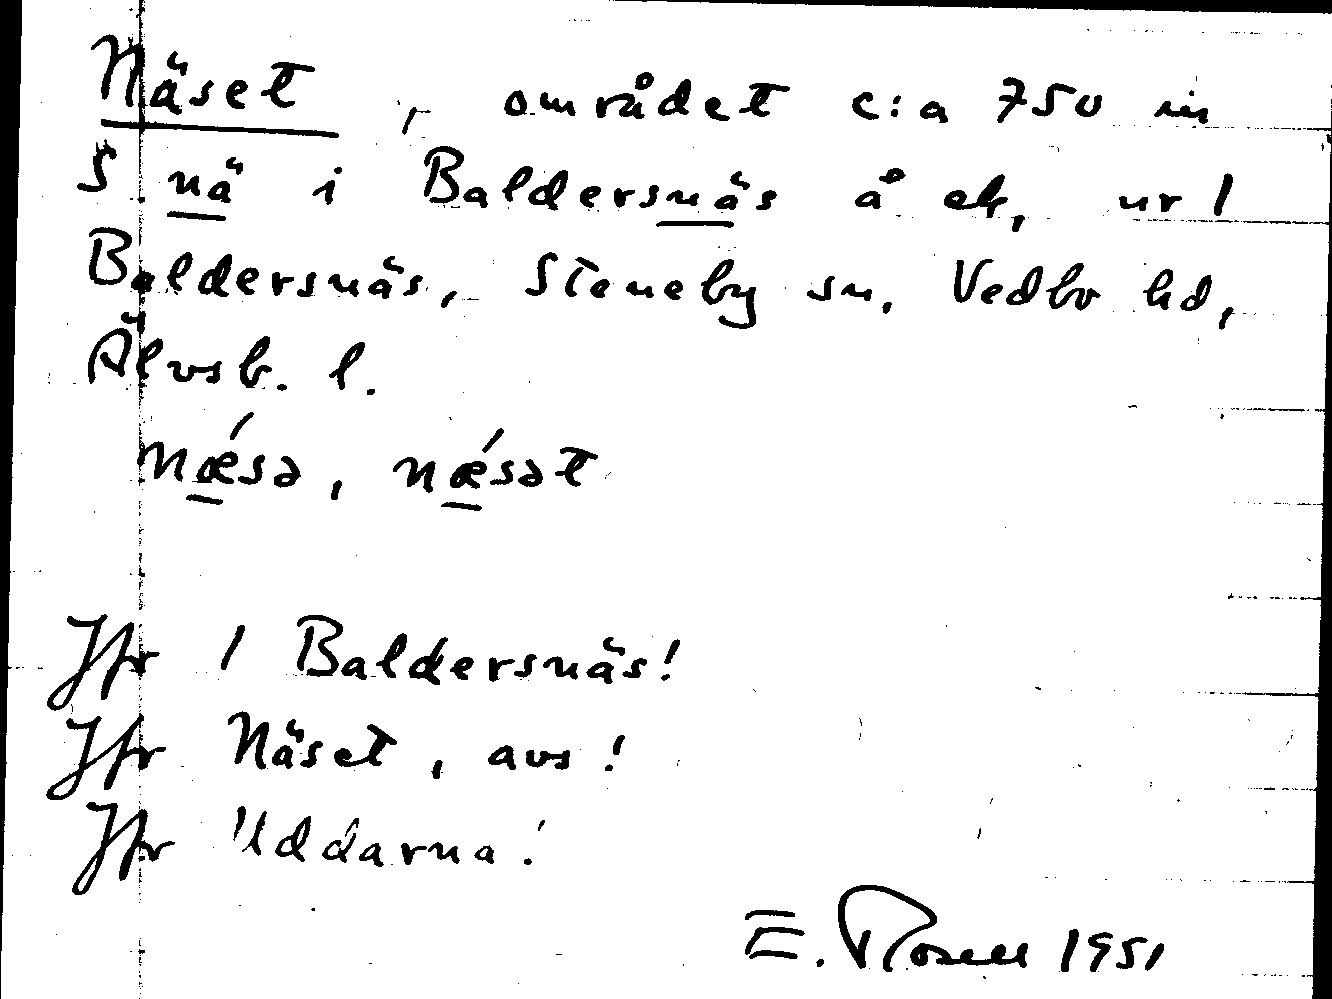 Näset, området c:a 750 m
S nä i Baldersnäs å ek, ur 1
Baldersnäs, Steneby sn, Vedbo hd,
Älvsb. l.
nǽsə, nǽsət
Jfr 1 Baldersnäs!
Jfr Näset, avs!
Jfr Uddarna!
E. Rosell 1951